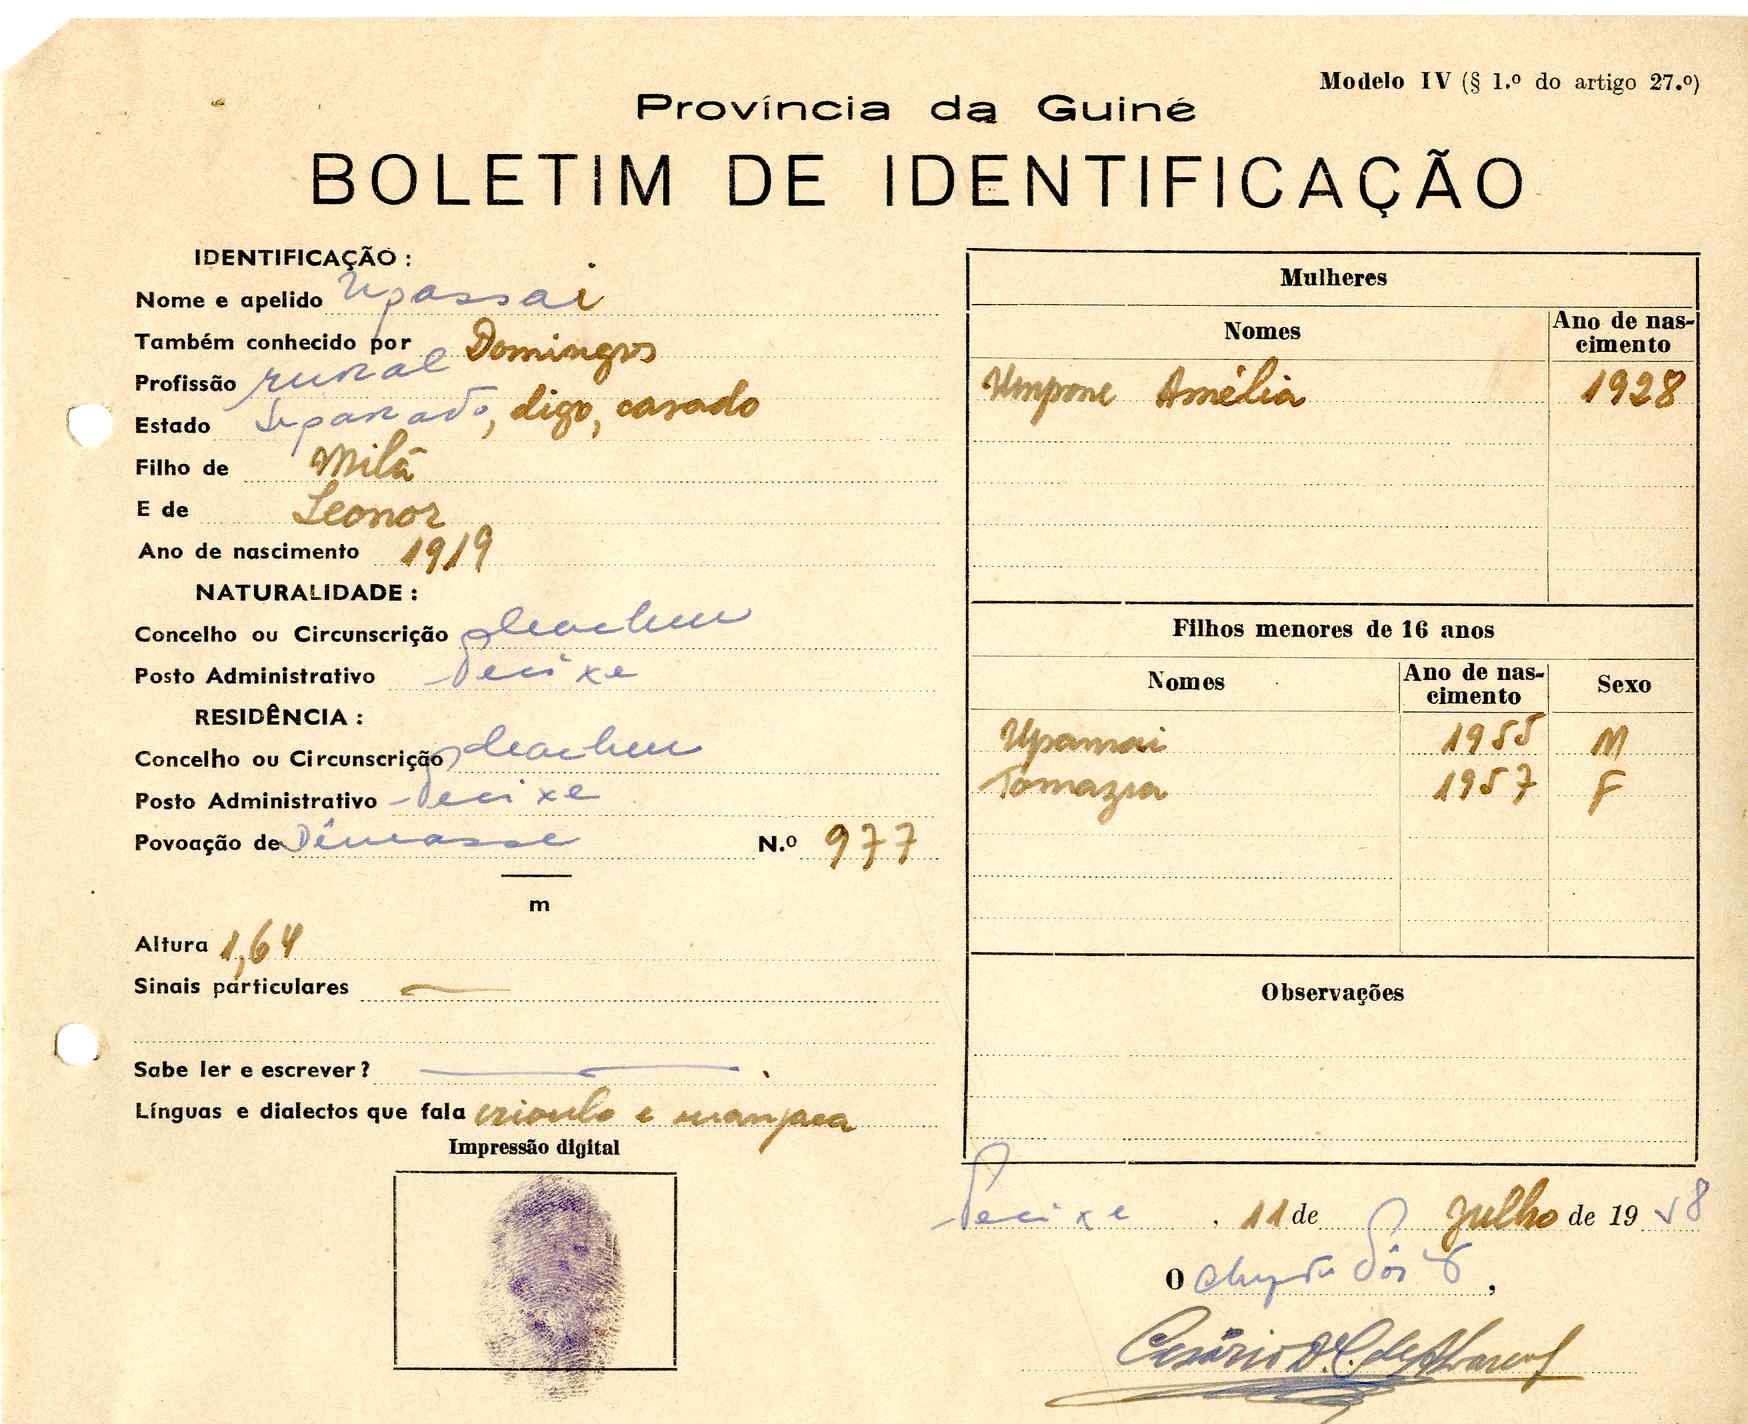 Modelo IV (§ 1.º do artigo 27.º)
Província da Guiné
BOLETIM DE IDENTIFICAÇÃO
IDENTIFICAÇÃO :
Nome e apelido Upassai
Também conhecido por Domingos
Profissão rural
Estado separado, digo, casado
Filho de Milã
E de Leonor
Ano de nascimento 1919
NATURALIDADE :
Concelho ou Circunscrição
Posto Administrativo Pecixe
RESIDÊNCIA :
Concelho ou Circunscrição
Posto Administrativo Pecixe
Povoação de N.º 977
m
Altura 1,64
Sinais particulares —
Sabe ler e escrever? —
Línguas e dialectos que fala crioulo e manjaca
Impressão digital
Mulheres
Nomes Ano de nas-
cimento
Umpone Amélia 1928
Filhos menores de 16 anos
Nomes Ano de nas-
cimento Sexo
1955 M
Tomazia 1957 F
Observações
Pecixe, 11 de Julho de 1958
O Chefe do Pôsto,
Cesário D. C. de